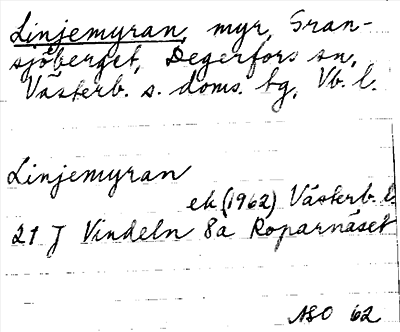 Linjemyran, myr, Gran-
sjöberget, Degerfors sn,
Västerb. s. doms. tg, Vb. l.
Linjemyran
ek (1962) Västerb. l.
21 J Vindeln 8a Roparnäset
ASO 62